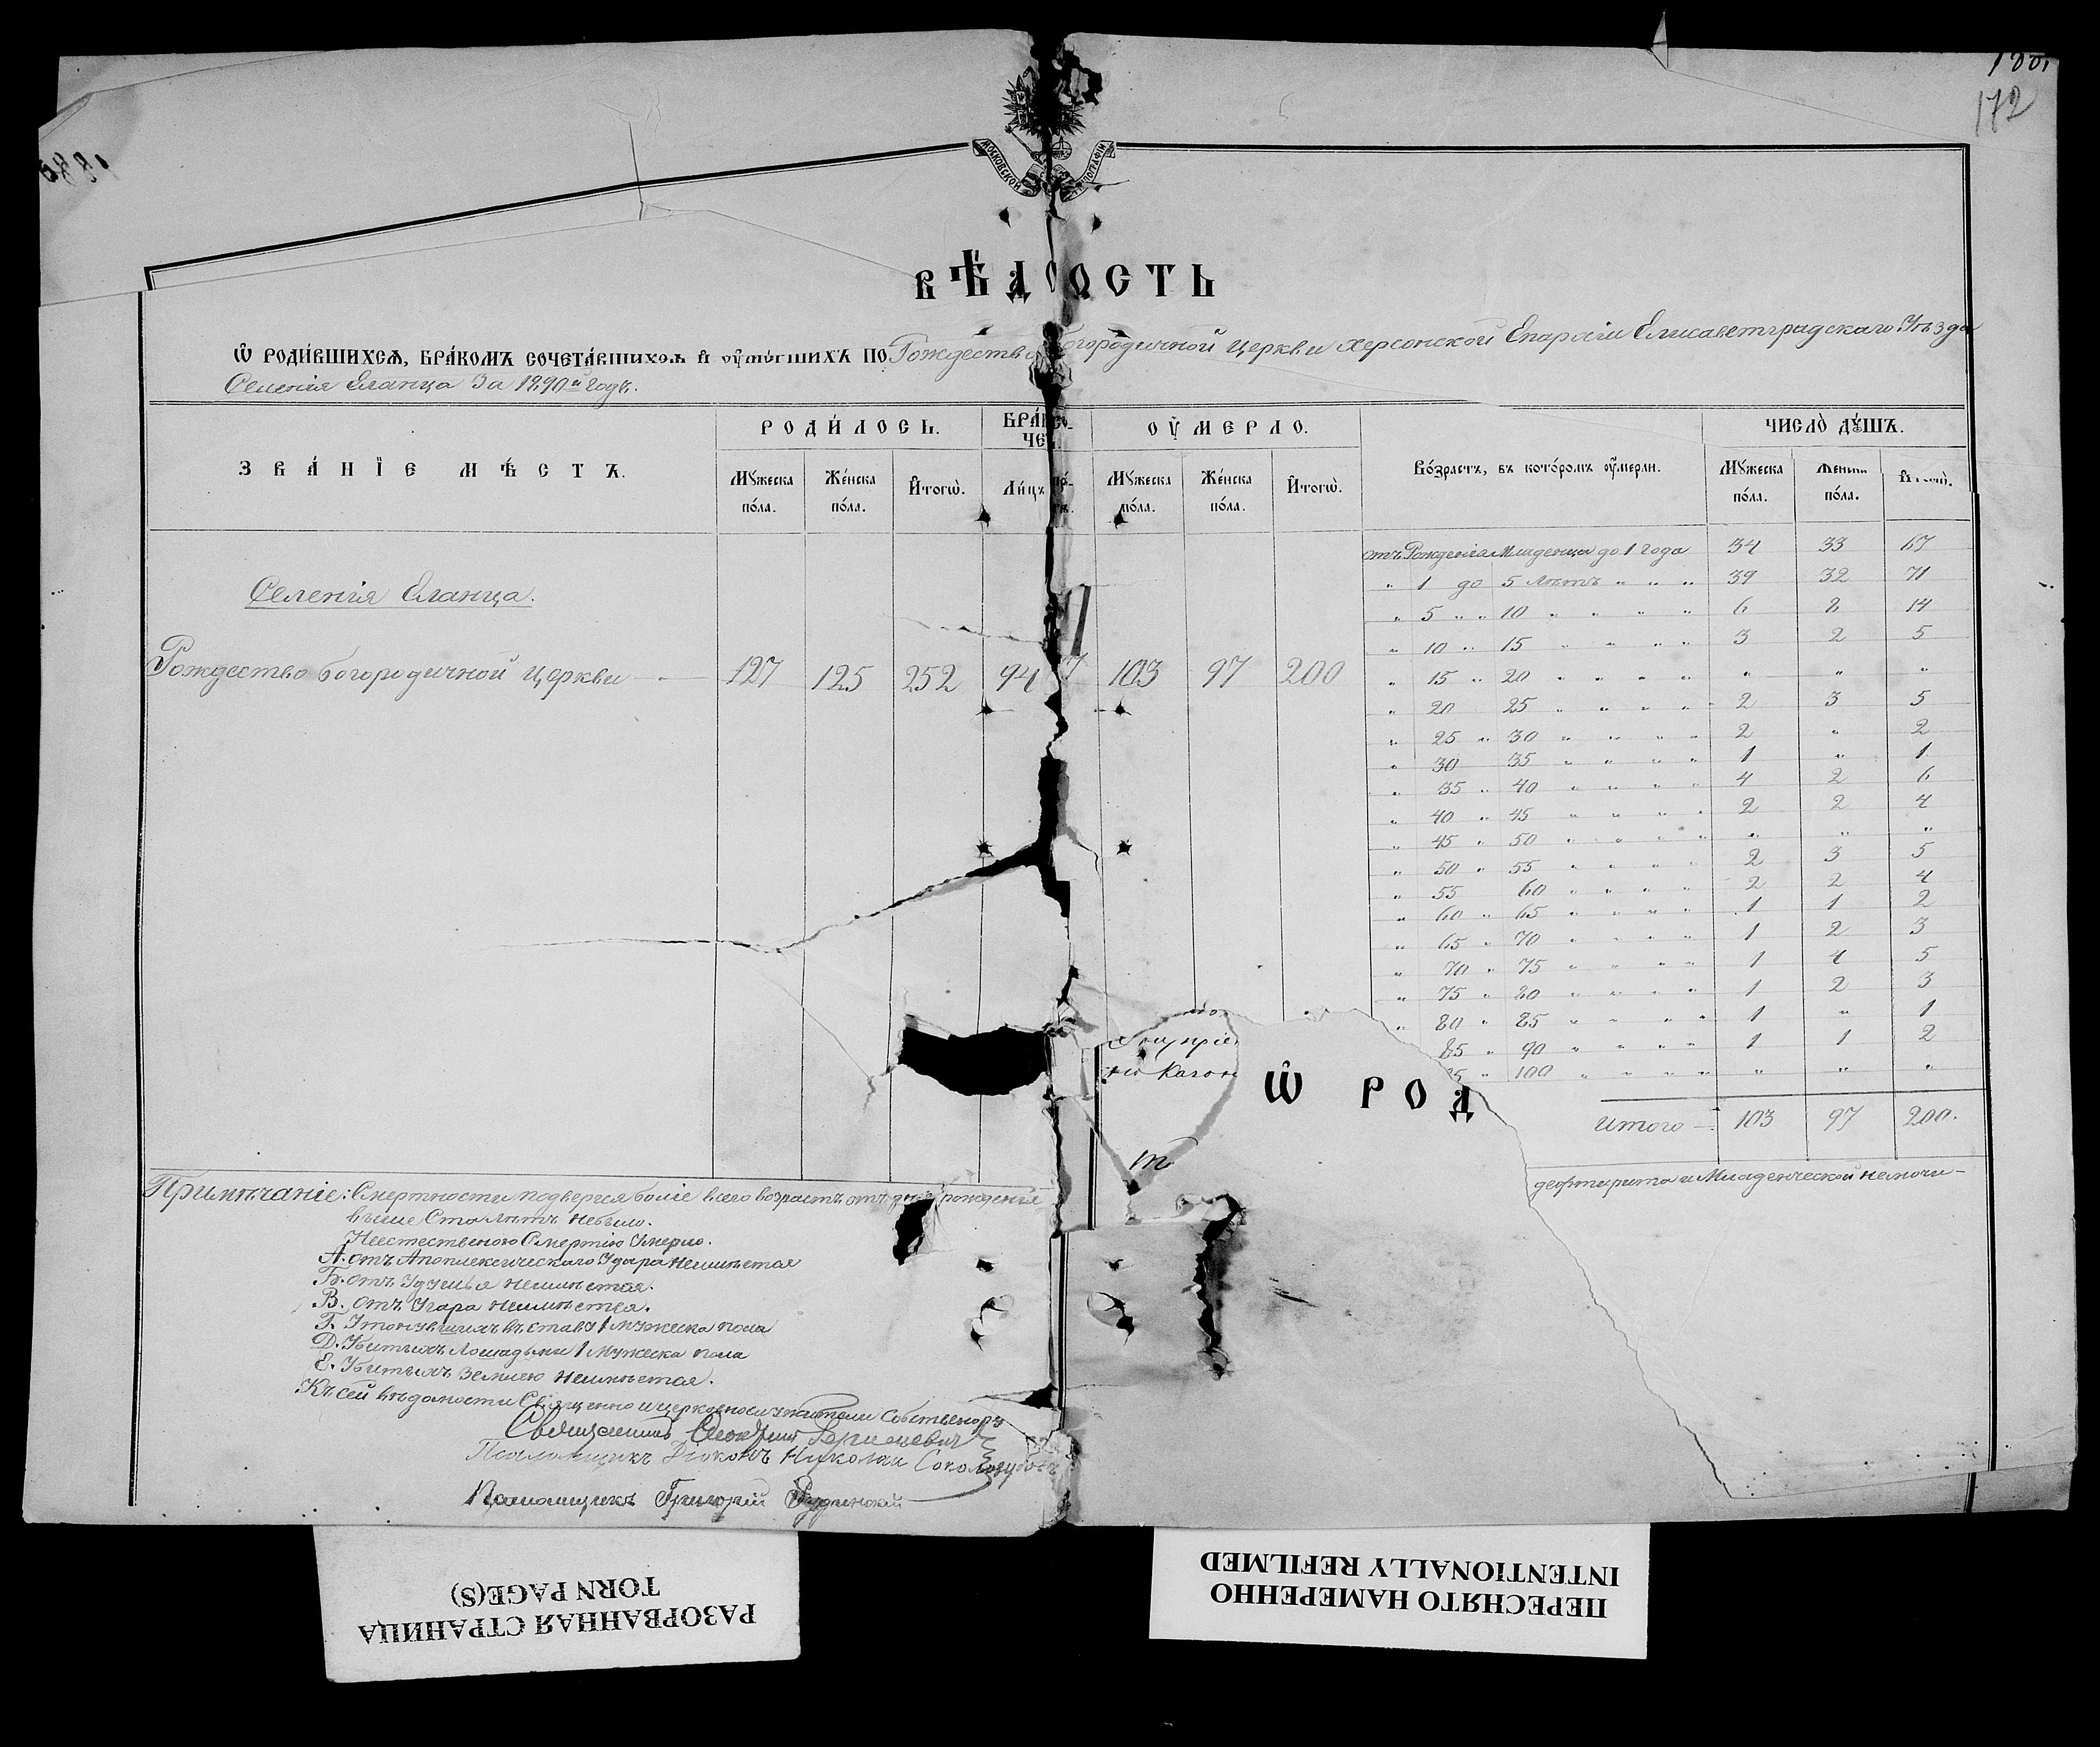 172
МОСКОВСКОЙ ТИПОГРАФІИ
ВѢДОМОСТЬ
Ѡ РОДИ́ВШИХСѦ, БРА́КОМЪ СОЧЕТА́ВШИХСѦ И ОУМЕ́РШИХЪ ПО Рождество Богородичной Церкви Херсонской Епархіи Елисаветградскаго Уѣзда
Селенія Еланца За 1890й годъ.
ЗВА́НІЕ МѢ́СТЪ.
РОДИ́ЛОСЬ.
БРА́К СО-
ЧЕТ.
ОУ́МЕРЛО.
ЧИСЛО̀ ДУ́ШЪ.
Му́жеска по́ла. Же́нска по́ла. И҆того̀. Ли́цъ Му́жеска по́ла. Же́нска по́ла. И҆того̀. Во́зрастъ, въ кото́ромъ оу҆́мерли. Му́жеска по́ла. Же́нска по́ла. И҆того̀.
Селенія Еланца.
Рождество Богородичной Церкви — 127 125 252 94 103 97 200
отъ Рожденія Младенца до 1 года 34 33 67
" 1 до 5 лѣтъ " " " 39 32 71
" 5 " " 10 " " " " 6 8 14
" 10 " 15 " " " " 3 2 5
" 15 " 20 " " " " " " "
" 20 25 " " " " 2 3 5
" 25 " 30 " " " " 2 " 2
" 30 35 " " " " 1 " 1
" 35 " 40 " " " " 4 2 6
" 40 " 45 " " " " 2 2 4
" 45 " 50 " " " " " " "
" 50 " 55 " " " " 2 3 5
" 55 60 " " " " 2 2 4
" 60 " 65 " " " " 1 1 2
" 65 " 70 " " " " 1 2 3
" 70 " 75 " " " " 1 4 5
" 75 " 80 " " " " 1 2 3
" 80 " 85 " " " " 1 " 1
85 " 90 " " " " 1 1 2
95 " 100 " " " " " " "
Ѡ РОД
Итого — 103 97 200.
Примѣчаніе: Смертности подвергся боліе всего возрастъ отъ дня рожденія
дефтерита и Младенческой немочи-
выше Ста лѣтъ небыло.
Неестественою Смертію Умерло.
А. отъ Апоплексическаго Удара неимѣется
Б. отъ Удушья неимѣется.
В. отъ Угара неимѣется.
Г. Утонувшихъ въ ставу 1 мужеска пола
Д. Убитыхъ Лошадьми 1 Мужеска пола
Е. Убитыхъ Землею неимѣется.
Къ сей вѣдомости Священно и церковнослужители Собственору
Священникъ
Псаломщикъ Діаконъ Николаи
Псаломщикъ Григорій Рудинский
РАЗОРВАННАЯ СТРАНИЦА
TORN PAGE(S)
ПЕРЕСНЯТО НАМЕРЕННО
INTENTIONALLY REFILMED